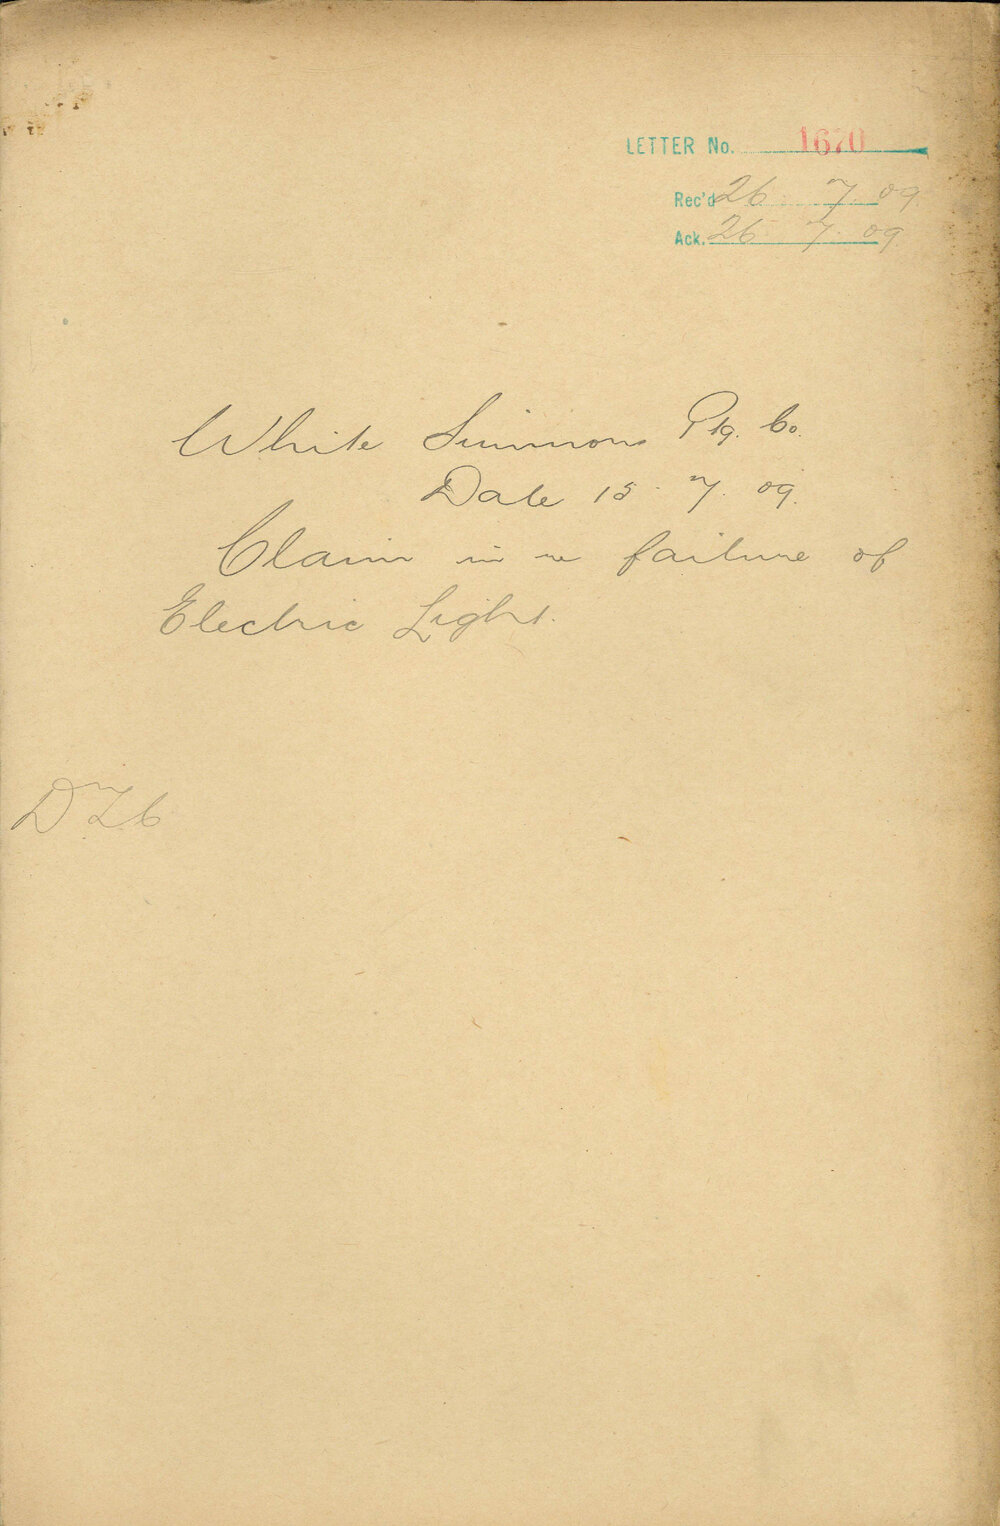 LETTER No. 1670
Rec'd 26 . 7 . 09.
Ack. 26 . 7 . 09
White Simmons Ptg. Co.
Date 15 . 7 . 09.
Claim in re failure of
Electric Light.